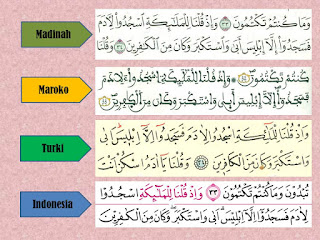 Madinah
وَمَا كُنتُمْ تَكْتُمُونَ ٣٣ وَإِذْ قُلْنَا لِلْمَلَٰٓئِكَةِ ٱسْجُدُوا۟ لِأٓدَمَ
فَسَجَدُوٓا۟ إِلَّآ إِبْلِيسَ أَبَىٰ وَٱسْتَكْبَرَ وَكَانَ مِنَ ٱلْكَٰفِرِينَ ٣٤ وَقُلْنَا
Maroko
كُنتُمْ تَكْتُمُونَ وَإِذْ قُلْنَا لِلْمَلَٰٓئِكَةِ اِسْجُدُوا لِأَدَمَ
فَسَجَدُوا إِلَّا إِبْلِيسَ أَبَىٰ وَاسْتَكْبَرَ وَكَانَ مِنَ الْكَٰفِرِينَ
Turki
وَاِذْ قُلْنَا لِلْمَلٰٓئِكَةِ اسْجُدُوا لِاٰدَمَ فَسَجَدُٓوا اِلَّٓا اِبْلٖيسَ اَبٰى
وَاسْتَكْبَرَ وَكَانَ مِنَ الْكَافِرٖينَ ٣٤ وَقُلْنَا يَٓا اٰدَمُ اسْكُنْ اَنْتَ
Indonesia
تُبْدُوْنَ وَمَا كُنْتُمْ تَكْتُمُوْنَ ٣٣ وَاِذْ قُلْنَا لِلْمَلٰۤىِٕكَةِ اسْجُدُوْا
لِاٰدَمَ فَسَجَدُوْٓا اِلَّآ اِبْلِيْسَ اَبٰى وَاسْتَكْبَرَ وَكَانَ مِنَ الْكٰفِرِيْنَ